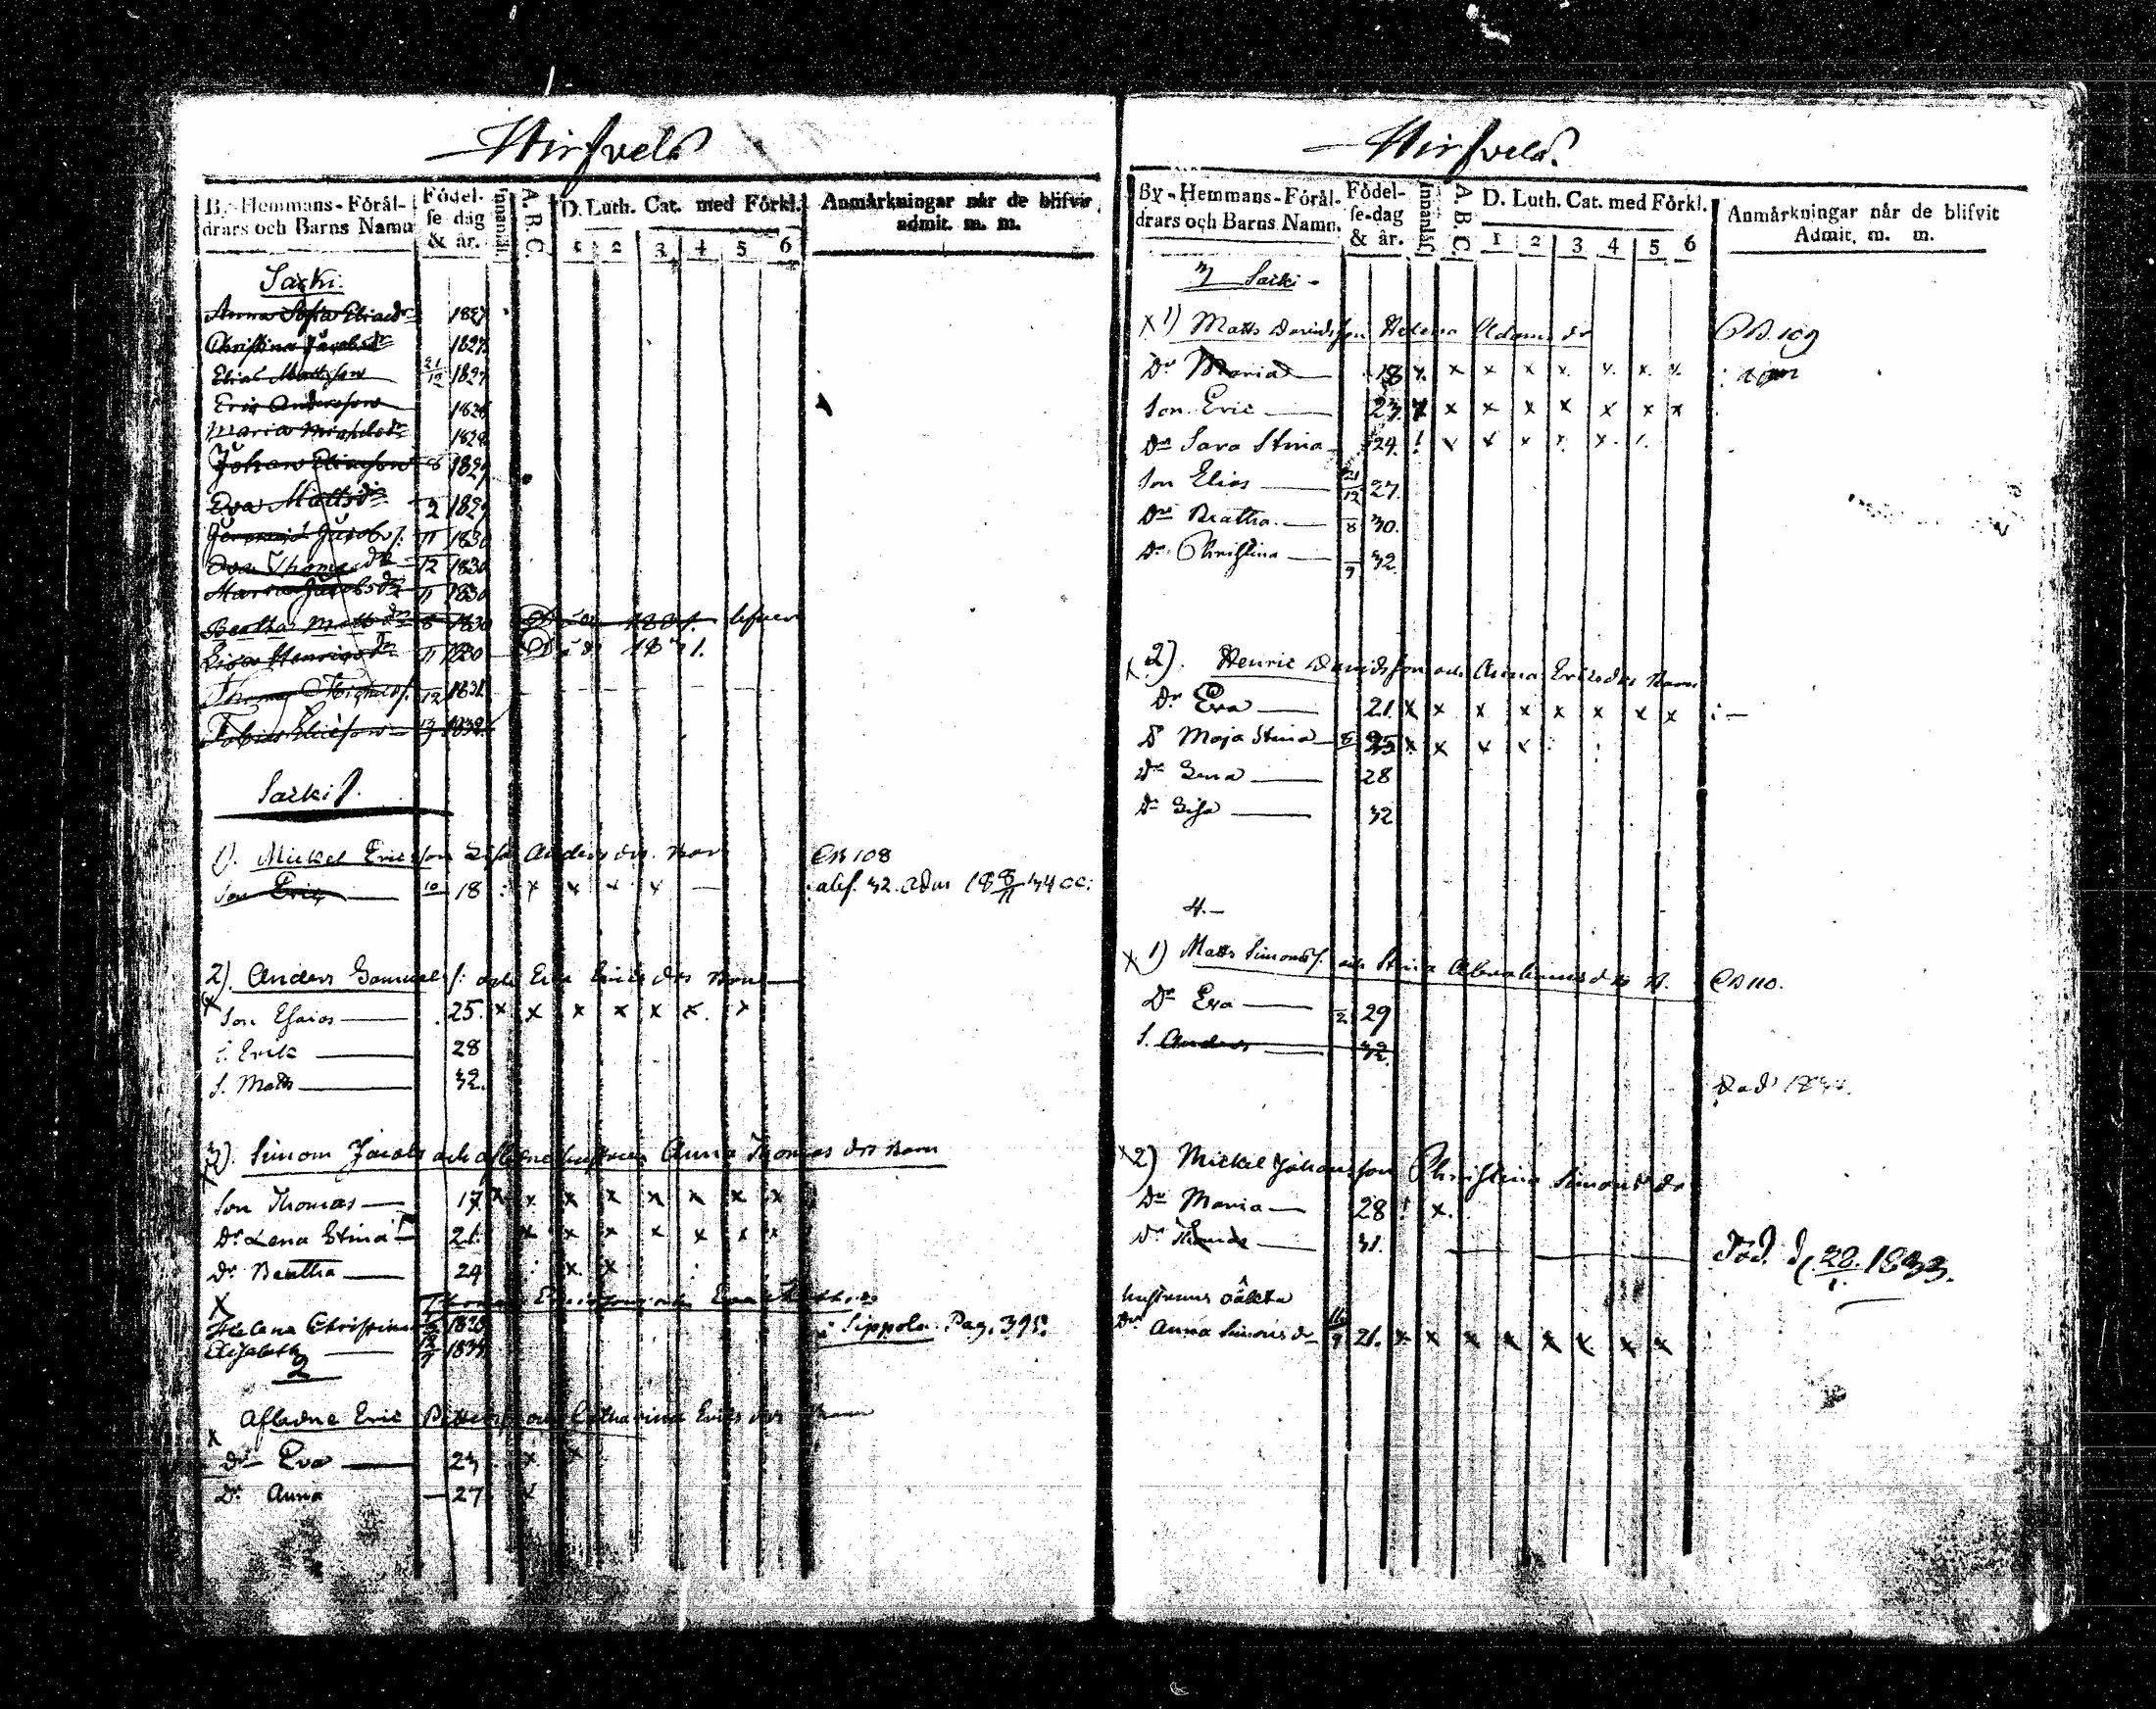 Hirfvelä
By-Hemmans-Förål-
drars och Barns Namn
Födel-
se-dag
& år.
Innanläs.
A. B. C.
D. Luth. Cat. med Förkl.
1 2 3 4 5 6
Anmärkningar når de blifvit
admit. m. m.
Särki.
Anna Sofia Eliaedr 1827
Christina Jacobsdr 1827
Elias Mattsson 21/12 1827
Eric Andersson 1828
Maria Mickelsdr 1829
Johan Eliasson 8 1829
Eva Mattsdr 2 1829
Jacobs. 11 1830
Eva Thomasdr 12 1830
Maria Jacobsdr 11 1830
Beatha Mattsdr 8 1830 Död 1831. lefver
Lisa Henricsdr 11 1830 Död 1831.
Thomas Michels. 12 1831
Tobias Ericsson 3 1832
Särki 1.
1). Mickel Ericsson Lisa Anders drs. Barn CB 108
Son Eric 10 18 : x x x x — abs. 32. Adm 18 8/11 34
2). Anders Samuels: och Eva Erics drs Barn
x Son Esaias 25. x x x x x x x
S. Erik 28
S. Matts 32.
3). Simon Jacobs och aflidne hustruns Anna Thomas drs Barn
Son Thomas 17 x x x x x x x x
Dr Lena Stina 21. x x x x x x x
Dr Beatha 24 : x x :
x Thomas Ericsson och Eva
Helena Christina 1828 : Sippola. Pag. 395.
Elisabeth 183
2
Afledne Eric Petters och Catharina Erics drs Barn
x
Dr Eva 23 x x
Dr Anna 27 x
Hirfvelä.
By-Hemmans-Förål-
drars och Barns Namn.
Födel-
se-dag
& år.
Innanläs.
A. B. C.
D. Luth. Cat. med Förkl.
1 2 3 4 5 6
Anmärkningar når de blifvit
Admit. m. m.
3 Särki
x 1) Matts Davidsson Helena Adams dr CB. 109
Dr Maria 18 x. x x x x. x. x. x. : adm
Son Eric 23. x x x x x x x x
Dr Sara Stina 24. ! x x x x. x. 1.
Son Elias 21/12 27.
Dr Beatha. 8 30.
Dr Christina 9 32.
x 2). Henric Davidsson och Anna Ericsdrs Barn
Dr Eva 21. x x x x x x x x : —
D Maja Stina 8 25 x x x x : :
Dr Lena 28
Dr Lisa 32
4.—
x 1) Matts Simons. och Stina Abrahams drs B. CB 110.
Dr Eva 2 29
S. Anders 32.
Död 183
x 2) Mickel Johansson Christina Simons dr
Dr Maria 28 ! x.
Dr 31. Död. d. 28/1. 1833.
hustruns oäkta
Dr Anna Simons dr 16/9 21. x x x x x x x x